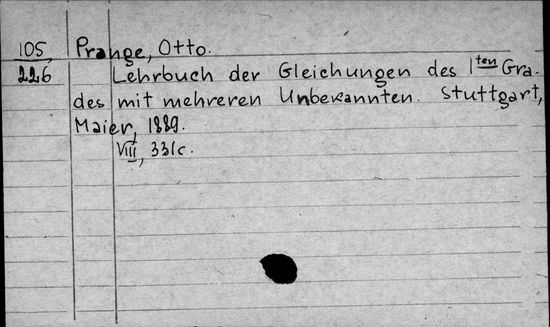 105, Prange, Otto.
226 Lehrbuch der Gleichungen des 1ten Gra-
des mit mehreren Unbekannten. Stuttgart,
Maier, 1889.
VIII, 331c.